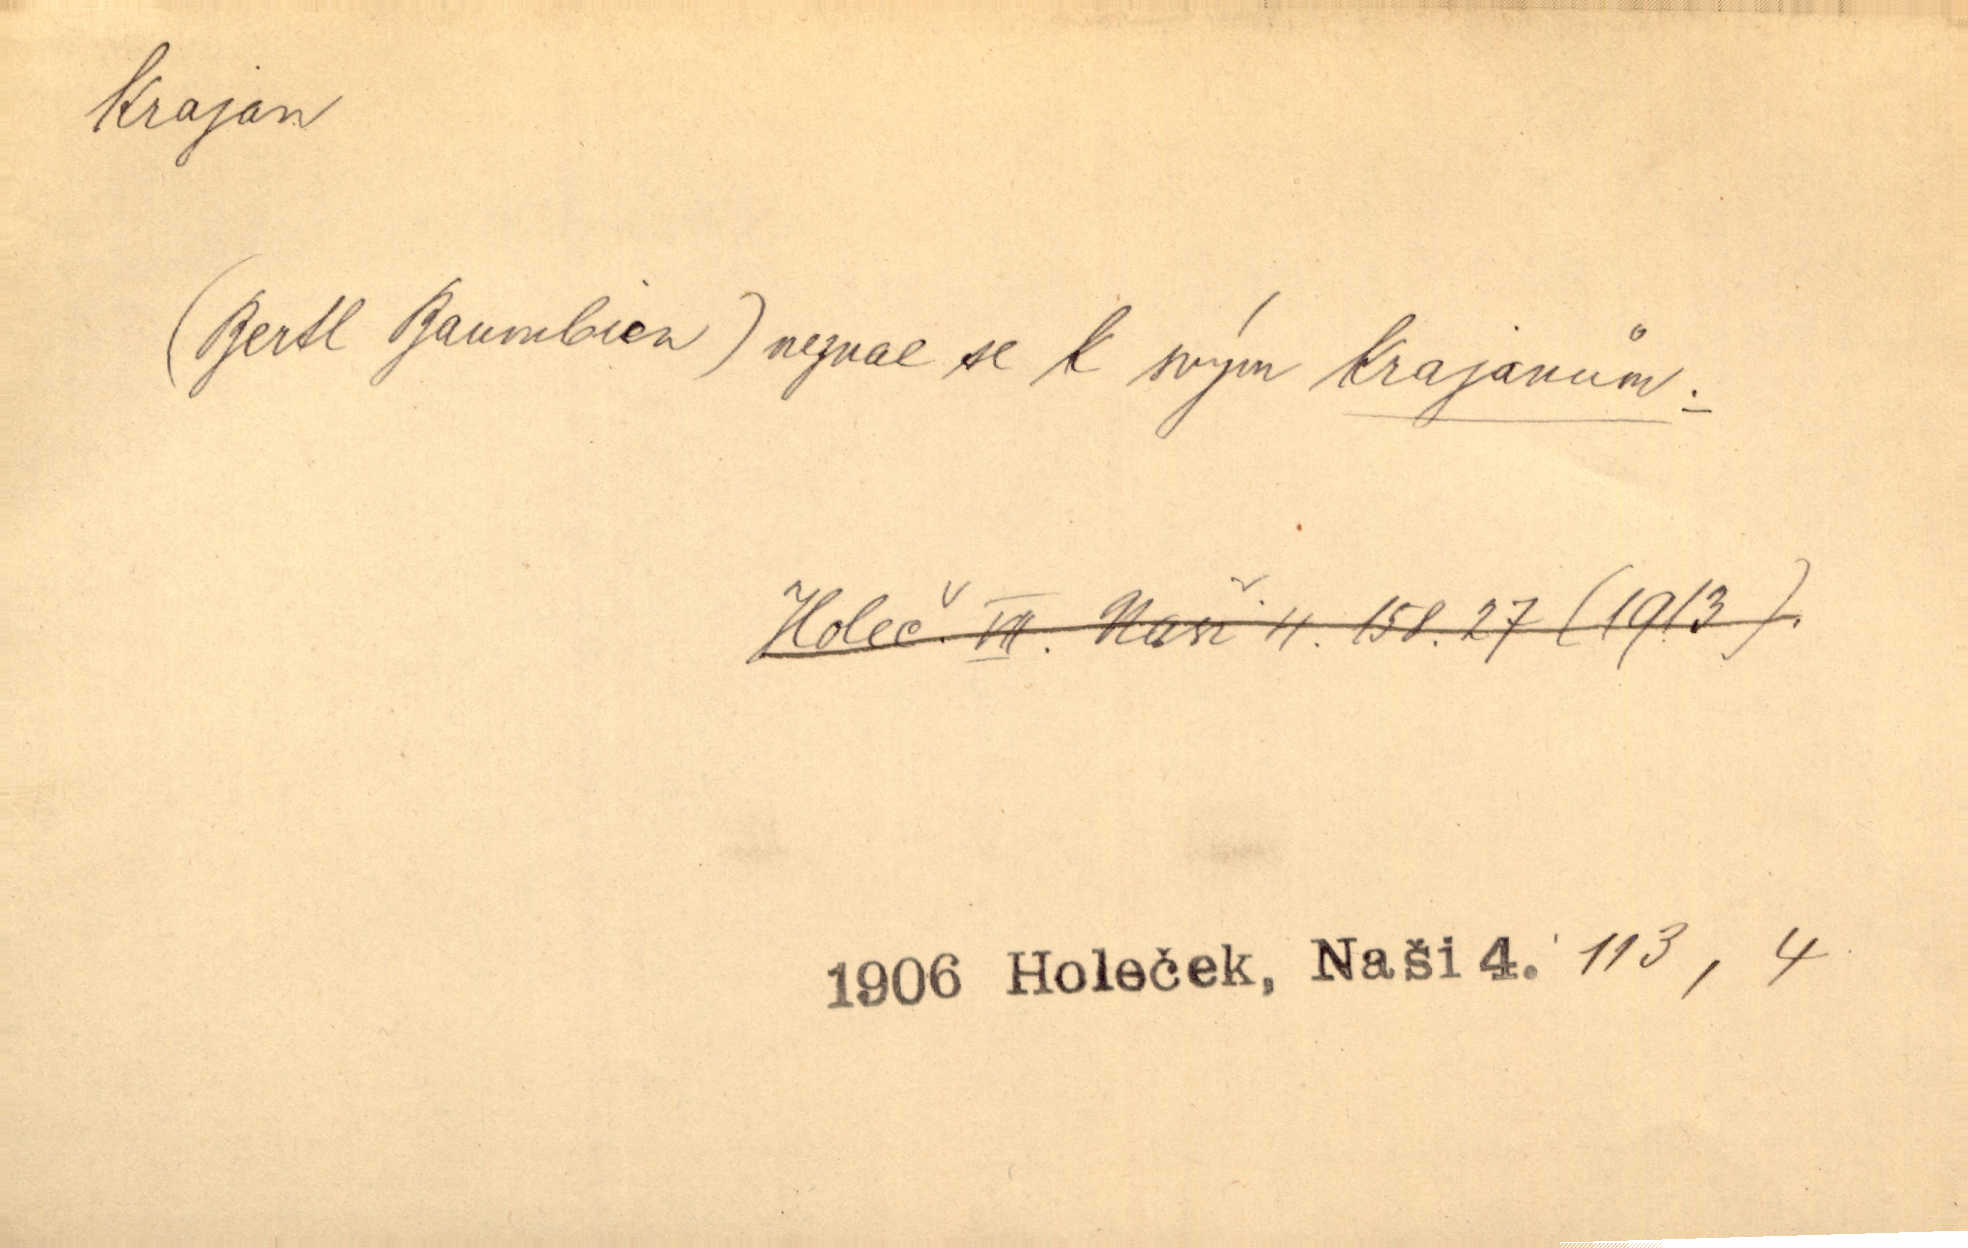 Krajan
(Bertl Baumbien) neznal se k svým krajanům.
Holeč. VII. Naši 4. 158. 27 (1913).
1906 Holeček, Naši 4. 113, 4